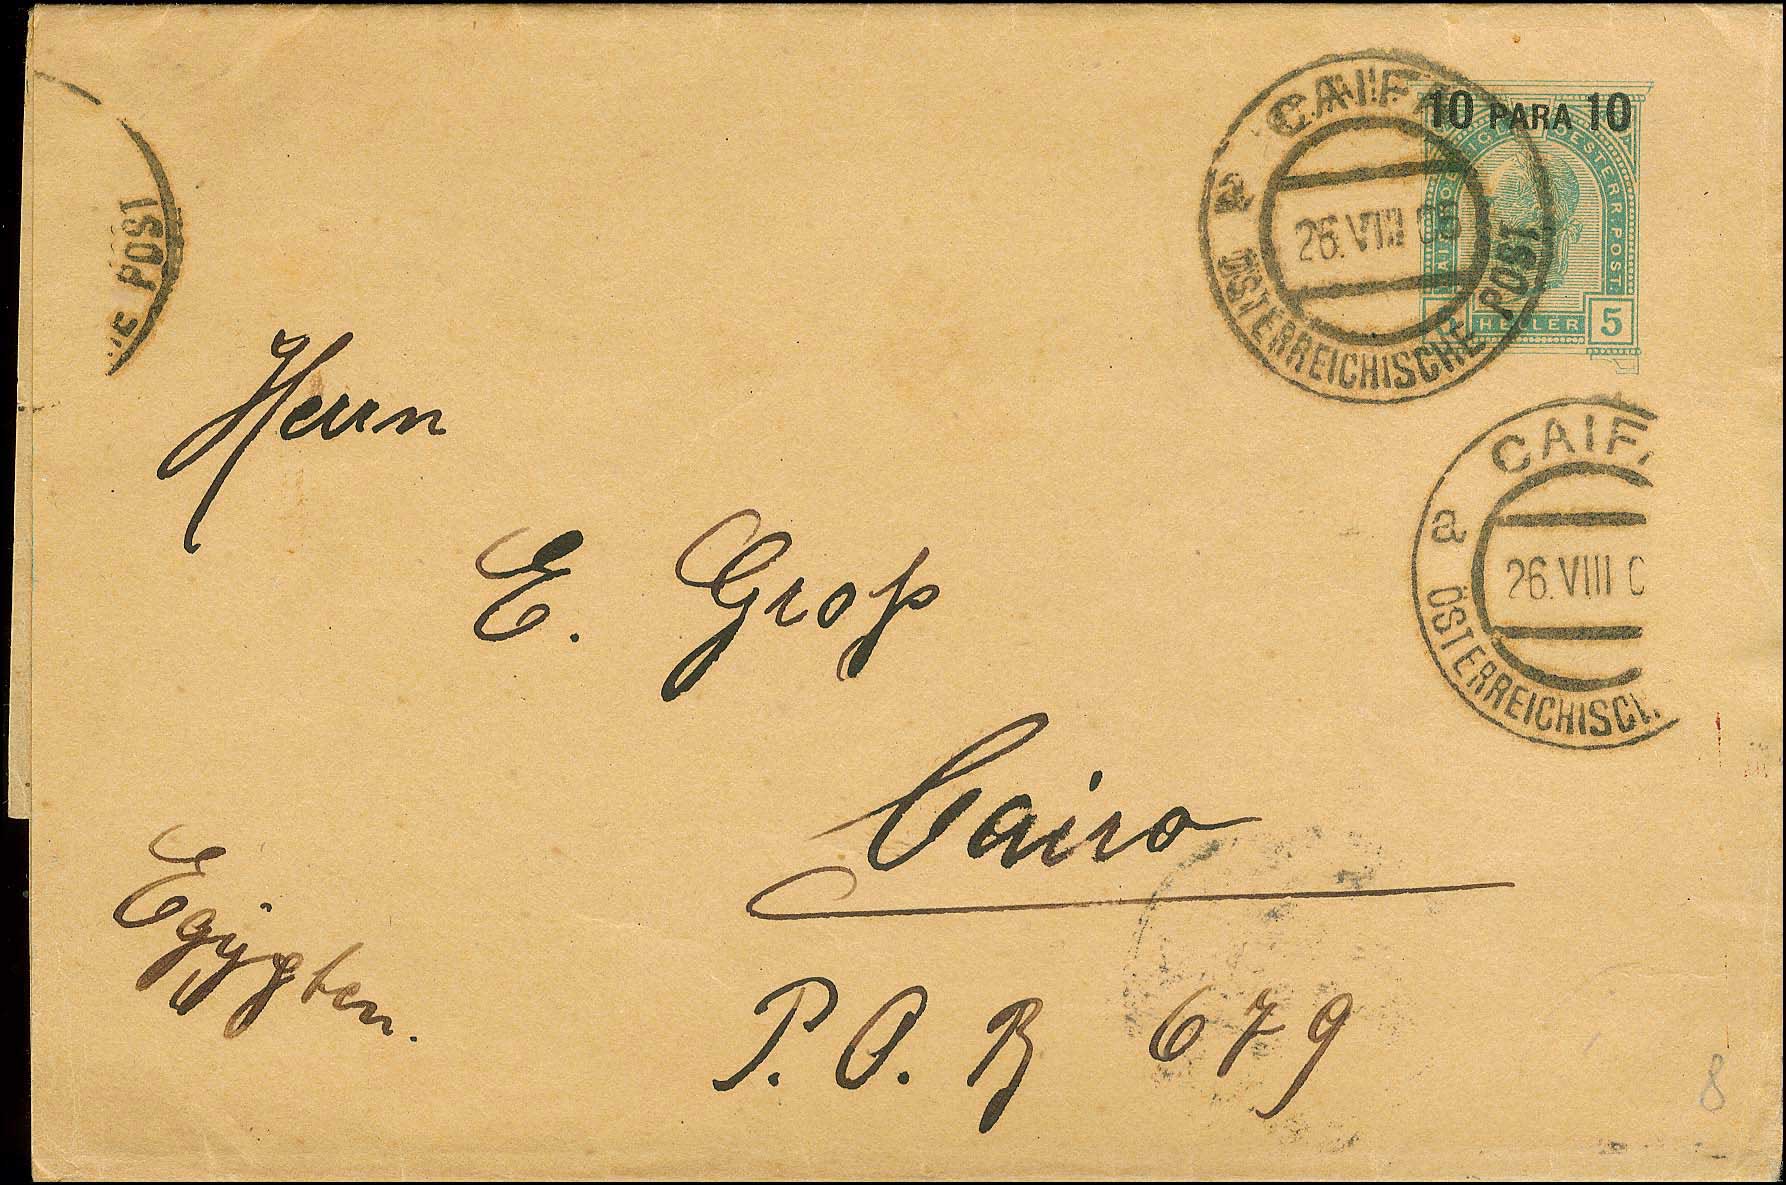 CAIFA
a
26.VIII 0
ÖSTERREICHISCHE POST
10 PARA 10
OESTERR. POST.
HELLER 5
POST
CAIFA
a
26.VIII 0
ÖSTERREICHISCH
Herrn
E. Groß
Cairo
Egypten.
P.O.B 679
8